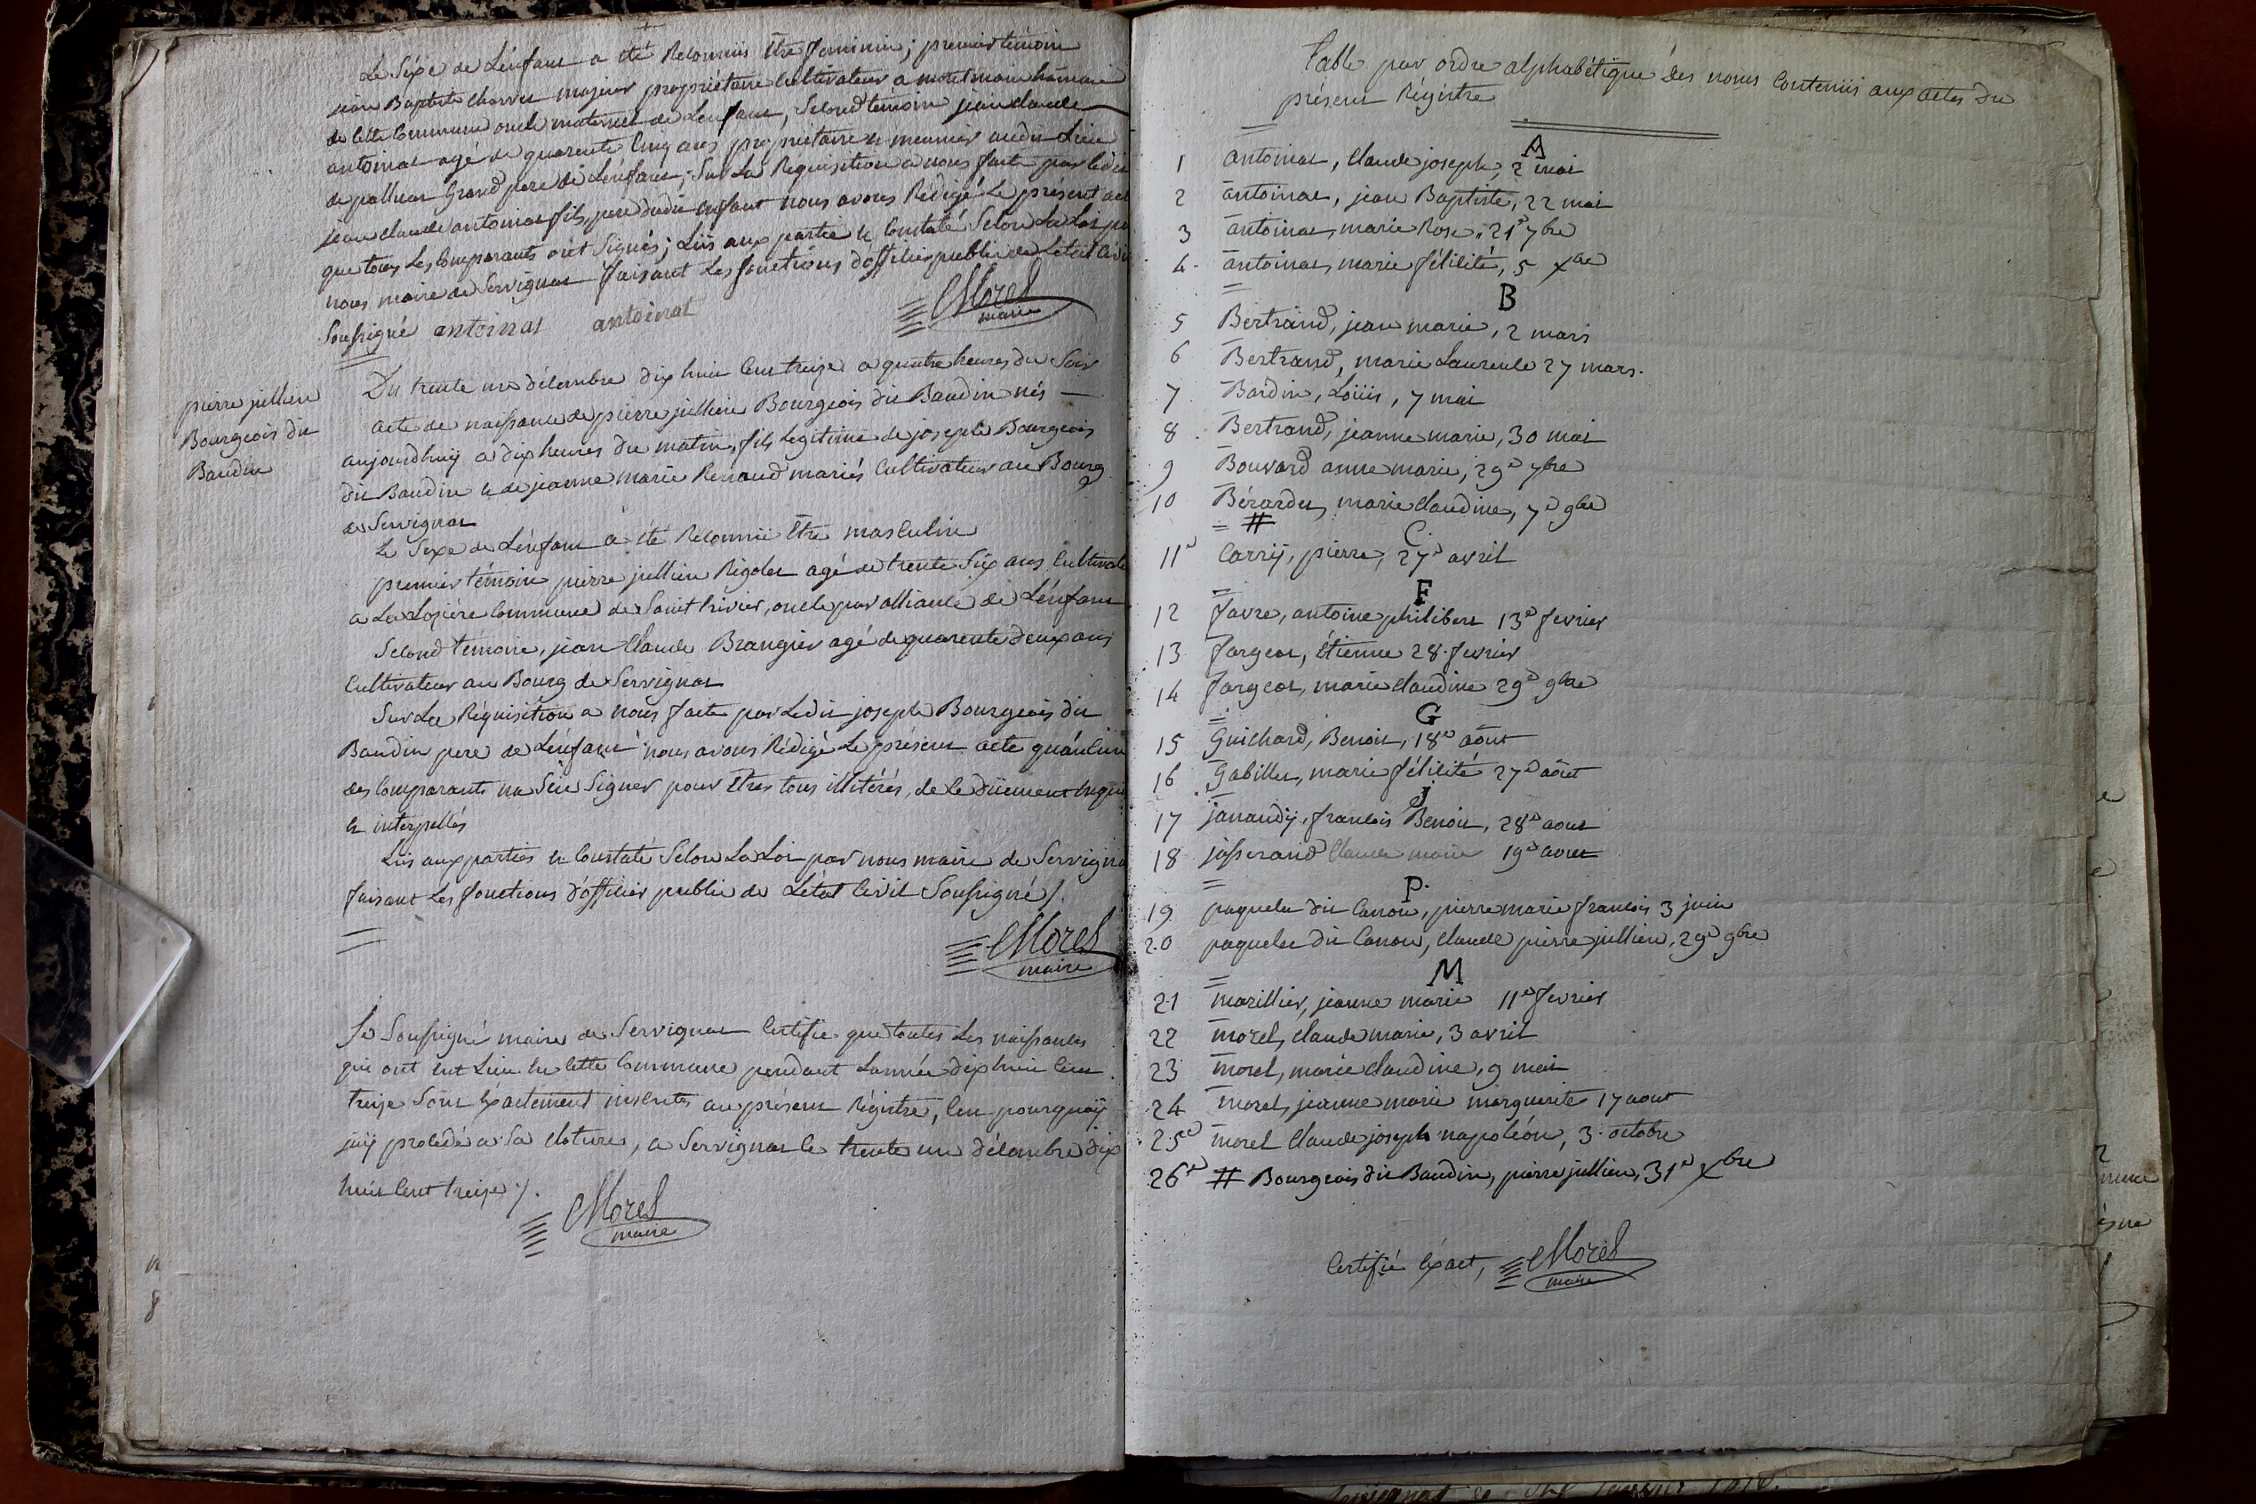 Le Sexe de Lénfant a été Reconnus Etre feminin; premier témoin
jean Baptiste Charvet majeur propriétaire Cultivateur a
de cette Commune oncle maternel de Lénfant, Second témoin jean claude
antoinat agé de quarente Cinq ans propriétaire & meunier audit Lieu
de grand pere de Lénfant; Sur La Requisition a nous faite par ledit
jean claude antoinat fils, pere dudit enfant nous avons Rédigé Le présent act
que tous Les Comparants ont Signés; Lüs aux partie & Constaté Selon La Loi pa
nous maire de Servignat faisant Les fonctions d'officier public de Létat Civi
Soussigné antoinat antoinat Morel
maire
pierre jullien
Bourgeois dit
Baudin
Du trente un décembre dix huit Cent treize a quatre heures du Soir
acte de naissance de pierre jullien Bourgeois dit Baudin nés
aujourdhuij a dix heures du matin, fils Legitime de joseph Bourgeois
dit Baudin & de jeanne marie Renaud mariés Cultivateur au Bourg
de Servignat
Le Sexe de Lénfant a été Reconnüe Etre masculin
premier témoin pierre jullien Rigolet agé de trente Six ans Cultivate
a La Lozière Commune de Saint trivier, oncle par alliance de Lénfant
Second témoin, jean Claude Brangier agé de quarente deux ans
Cultivateur au Bourg de Servignat
Sur La Réquisition a nous faite par Ledit joseph Bourgeois dit
Baudin pere de Lénfant nous avons Rédigé Le présent acte quáucun
des Comparants na Seu Signer pour Etres tous illitérés, de ce düement enqui
& interpellés
Lüs aux parties & Constaté Selon La Loi par nous maire de Servigna
faisant Les fonctions d'officier public de Létat Civil Soussigné /.
Morel
maire
Je Soussigné maire de Servignat Certifie que toutes Les naissances
qui ont eut Lieu en cette Commune pendant Lannée dix huit Cent
treize Sont Exactement inscrites au présent Régistre, C'en pourquoij
jáij procédé a Sa cloture, a Servignat le trente un décembre dix
huit Cent treize /.
Morel
maire
Table par ordre alphabétique des noms Contenüs aux actes du
présent Régistre
A
1 antoinat, Claude joseph, 2 mai
2 antoinat, jean Baptiste, 22 mai
3 antoinat, marie Rose, 21 7bre
4 antoinat, marie félicité, 5 xbre
B
5 Bertrand, jean marie, 2 mars
6 Bertrand, marie Laurence 27 mars.
7 Bardin, Loüis, 7 mai
8 Bertrand, jeanne marie, 30 mai
9 Bouvard anne marie, 29 7bre
10 Bérardet, marie Claudine, 7 9bre
#
C.
11 Carrij, pierre, 27 avril
F
12 favre, antoine philibert 13 fevrier
13 fargeot, étienne 28 fevrier
14 fargeot, marie claudine 29 9bre
G
15 Guichard, Benoit, 18 aôut
16 Gabillet, marie félicité 27 aôut
J
17 janaudij, francois Benoit, 28 aout
18 josserand Claude marie 19 aout
P.
19 paquelet dit Canon, pierre marie francois 3 juin
20 paquelet dit Canon, Claude pierre jullien, 29 9bre
M
21 marillier, jeanne marie 11 fevrier
22 morel, claude marie, 3 avril
23 morel, marie claudine, 9 mai
24 morel, jeanne marie marguerite 17 aout
25 morel Claude joseph napoléon, 3 octobre
26 # Bourgeois dit Baudin, pierre jullien, 31 xbre
Certifié Exact, Morel
maire